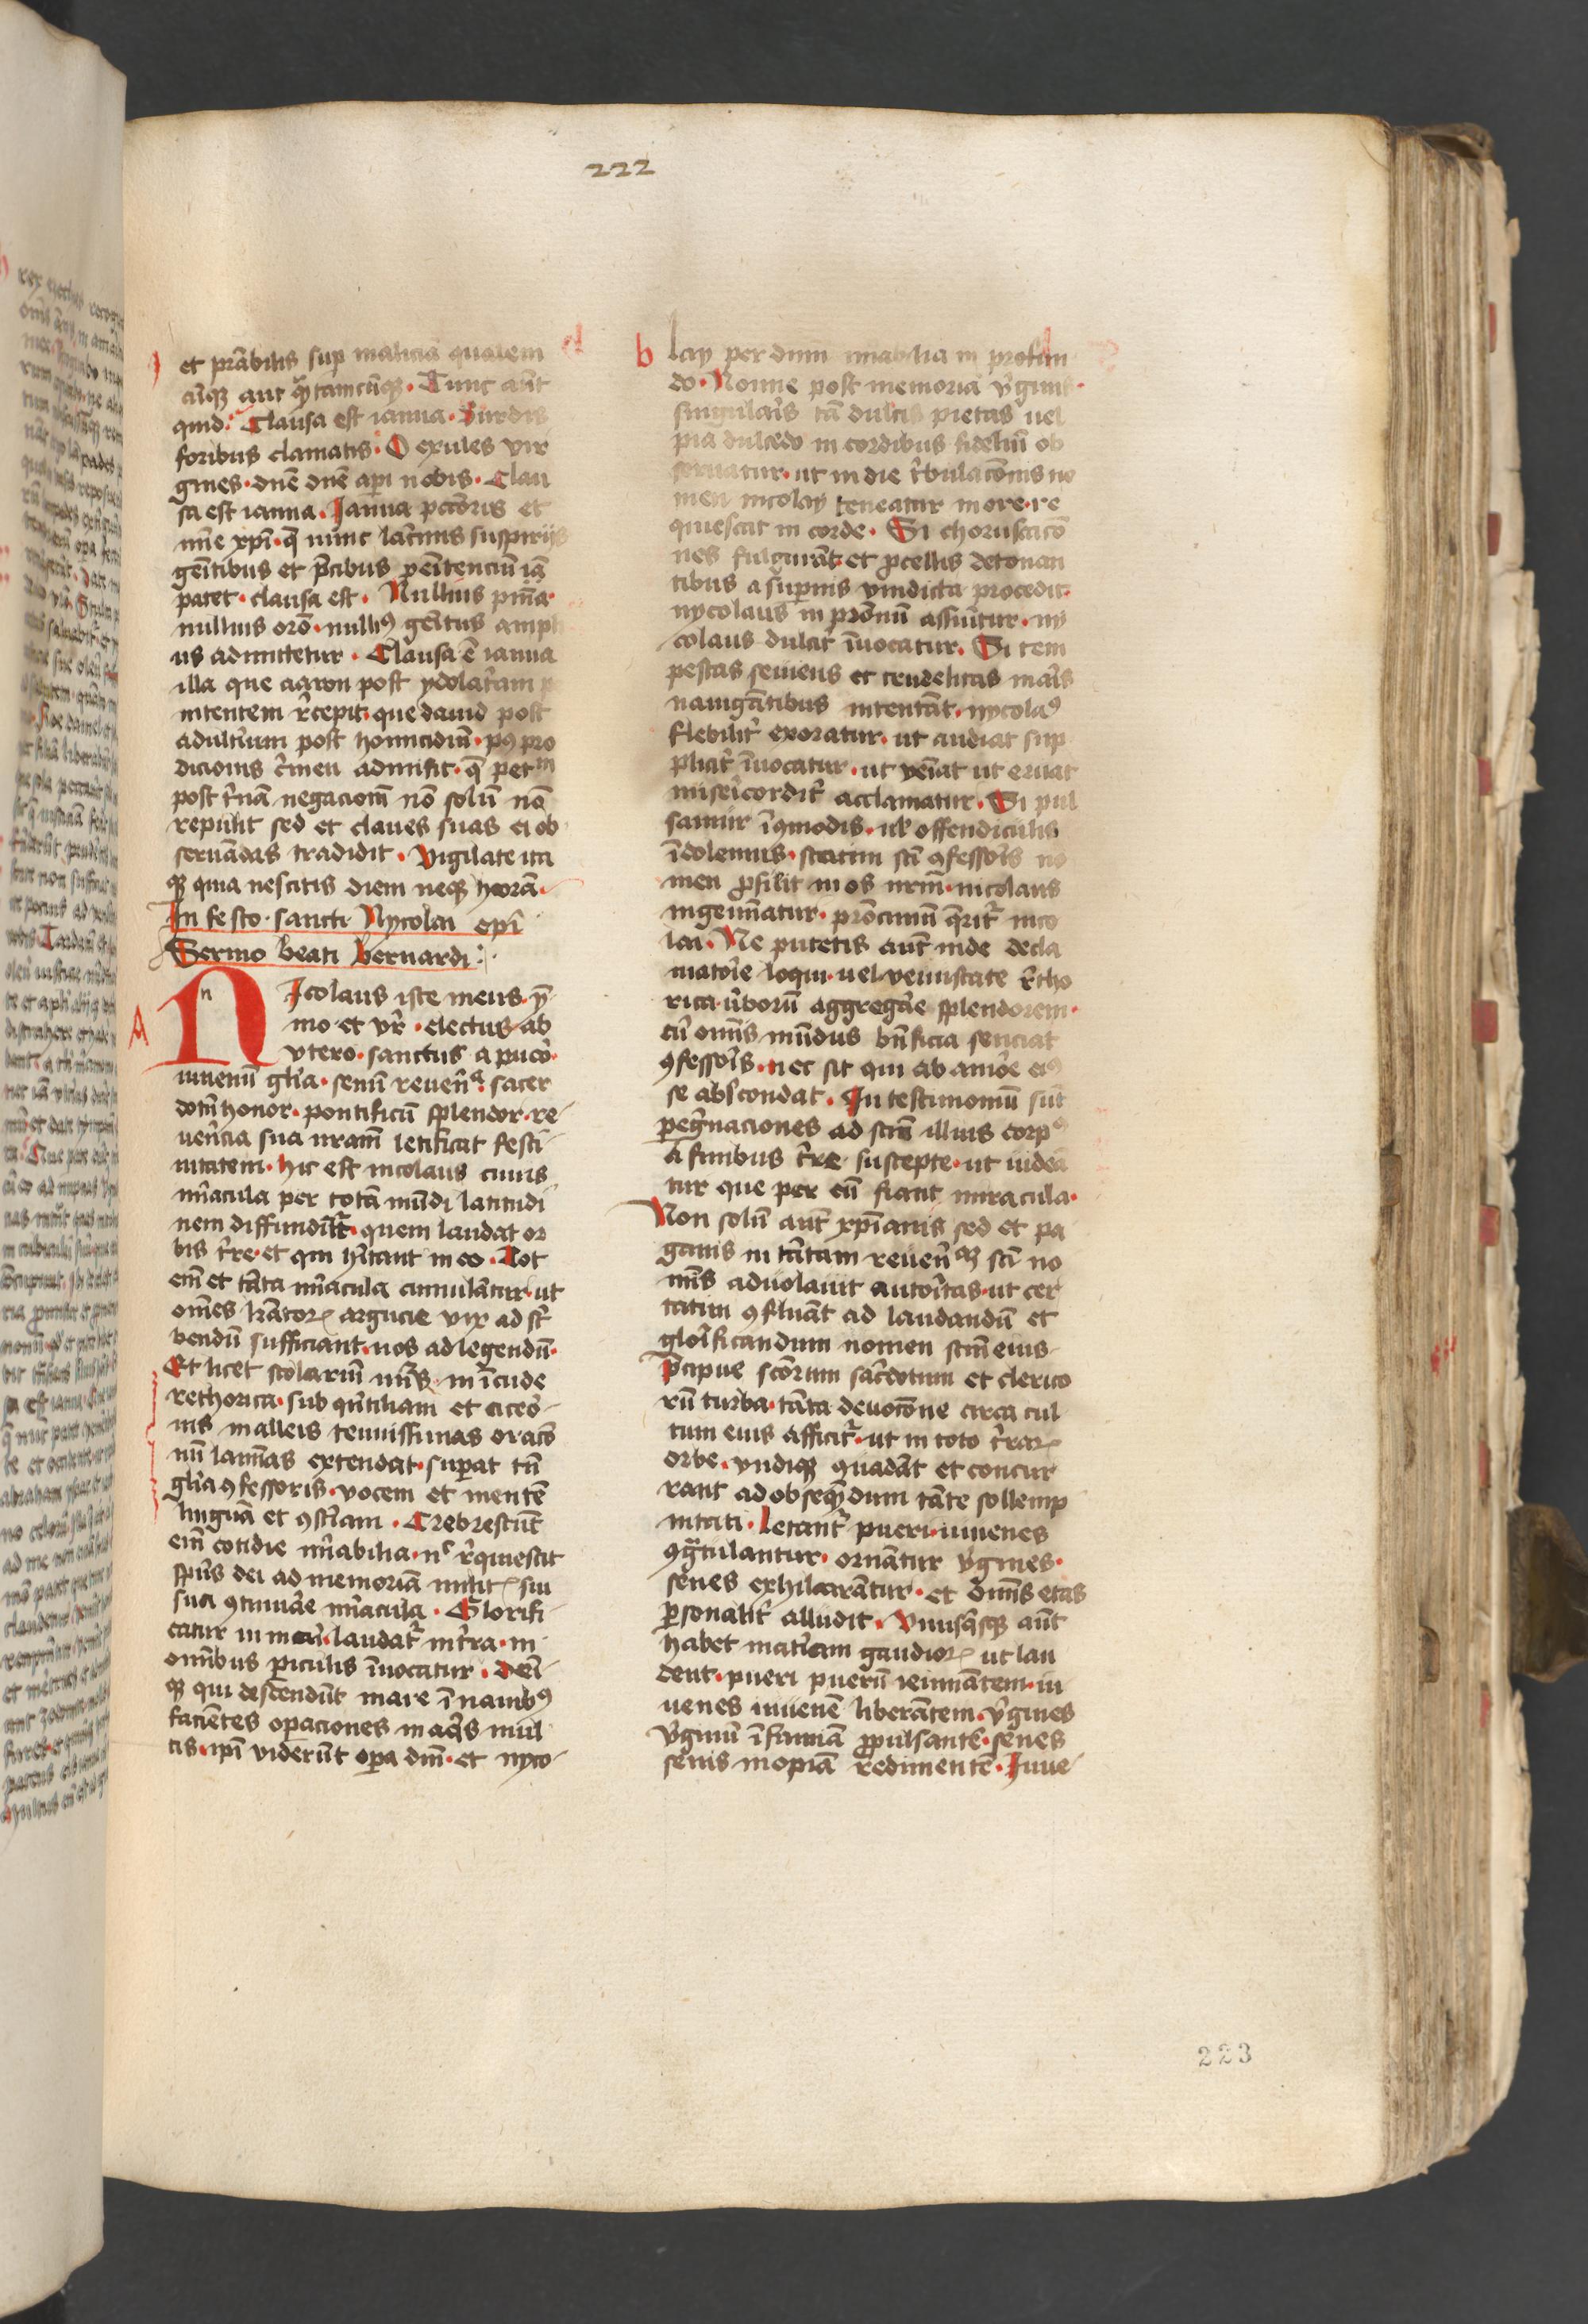 222
et prābilis sup maliciā qualem
cūqꝫ aut qͣꝫtamcūqꝫ. Tunc aūt
quid. Clausa est ianua. Surdis
foribus clamatis. O exules vir
gines. dnē dnē aꝑi nobis. Clau
sa est ianua. Ianua pcōris et
mīe xpī. q̄ nūnc lacīmis suspirijs
gemītibus et p̄cibus peītenciū iā
patet. clausa est. Nullius pnīa.
nullius orō. nullꝰ gemītus ampli
us admittetur. Clausa ē ianua
illa que aaron post ydolatʼam
nitentem r̄cepit. que dauid post
adultʼium post homicidiū. pꝰ pro
dicionis cʼmen admisit. q̄ petᵐ
post tʼnā negaciom̄ nō solū nō
repulit sed et claues suas ei ob
seruādas tradidit. Vigilate ita
qꝫ quia nescitis diem neqꝫ horā.
In festo sancti Nycolai epī
Sermo beati bernardi:
A
NIcolaus iste meus. ȳ
mo et vr̄. electus ab
vtero. sanctus a pucō.
iuuenū glīa. senū reuerñᵃ. sacer
dotū honor. pontificū splendor. re
uerēcia sua nram̄ letificat festi
uitatem. hic est nicolaus cuius
mʼacula per totā mūdi latitudi
nem diffundūtʼ. quem laudat or
bis tʼre. et qui hītant in eo. Tot
em̄ et tāta mʼacula cumulātur. ut
omēs lrātoꝝ argucie vix ad scʼ
bendū sufficiant. nos ad legendū.
Et licet scolariū nūs. in īcude
rethorica. sub quītiliani et cicerō
nis malleis tenuissimas oracō
nū lamīas extendat. suꝑat tñ
glīa ꝯfessoris. vocem et mentē
linguā et ꝯscīam. Crebrescūt
em̄ cotidie mʼabilia. nᶜ rʼquiescit
spūs dei ad memoriā militꝭ sui
sua ꝯtinuāre mʼacula. Glorifi
catur in marī. laudatʼ in tʼra. in
omībus ꝑiculis īuocatur. Deī
qꝫ qui descendūt mare ī nauibꝰ
faciētes oꝑaciones in aq̄s mul
tis. ipī viderūt oꝑa dnī. et nyco
b
lay per dum mʼabilia in profun
do. Nonne post memoriā vʼginis.
singulaʼis tā dulcis pietas uel
pia dulcedo in cordibus fideliū ob
seruatur. ut in die tʼbulacōnis no
men nicolay teneatur in ore. re
quiescat in corde. Si choruscacō
nes fulgurāt. et ꝓcellis detonan
tibus a suꝑnis vindicta procedit.
nycolaus in prōnū assumitur. ny
colaus dulcitʼ īuocatur. Si tem
pestas seuiens et crudelitas maʼis
nauigātibus intentāt. nycolaꝰ
flebilitʼ exoratur. ut audiat sup
plicitʼ īuocatur. ut veniāt ut eruat
misericorditʼ acclamatur. Si pul
samur īꝯmodis. uł offendiculis
īdolemus. statim scī ꝯfessoʼis no
men ꝓsilit in os nrm̄. nicolaus
ingemīatur. prōcinniū q̄ritʼ nico
lai. Ne putetis aut̄ inde decla
matoʼie loqui. uel venustate rʼtho
rica. ūborū aggregaʼe splendorem.
cū omīs mūdus bñficia senciat
ꝯfessoʼis. nec sit qui ab amoʼe eiꝰ
se abscondat. In testimoniū sūt
ꝑegʼnaciones ad scm̄ illius corpꝰ
a finibus tʼre. suscepte. ut uidea
tur que per eū fiant miracula.
Non solū aut̄ xpīanis sed et pa
ganis in tātam reueñᵃꝫ scī no
mīs aduolauit autoītas. ut cer
tatim ꝯfluāt ad laudandū et
gloʼificandum nomen scm̄ eius.
p̄cipue scōrum sacʼdotum et clerico
rū turba. tāta deuocōne circa cul
tum eius afficitʼ. ut in toto tʼraꝝ
orbe. vndiqꝫ ꝯuadāt et concur
rant ad obseqꝫdum tāte sollemp
nitati. Letantʼ pueri. iuuenes
ꝯgͣtulantur. ornātur vʼgines.
senes exhilarātur. et omīs etas
ꝑsonalitʼ alludit. Vnusqͥsqꝫ aut̄
habet matʼiam gaudioꝝ ut lau
dent. pueri puerū ieiunātem. iu
uenes iuuenē liberātem. vʼgines
vʼginū īfamiā ꝓpulsantē. senes
senis inopiā redimentē. Iuue
223